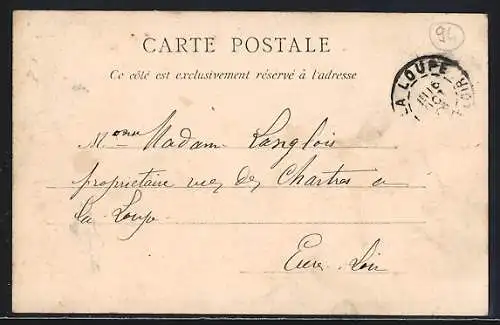 94
CARTE POSTALE
Ce côté est exclusivement réservé à l'adresse
LA LOUPE
Madame Langlois
propriétaire rue de Chartres a
La Loupe
Eure Loir